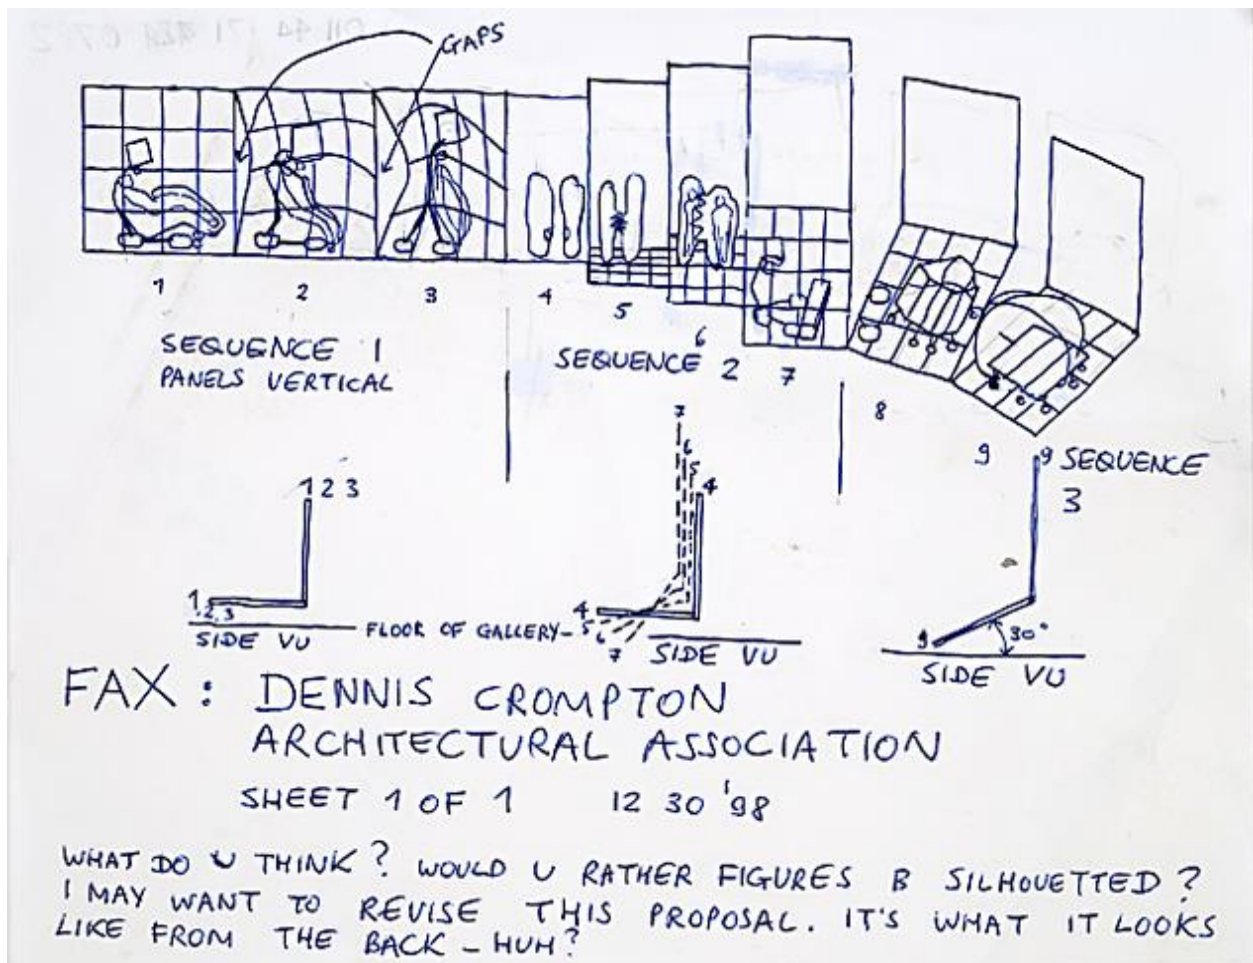 GAPS
1
2
3
4
5
6
7
8
9
SEQUENCE 1
PANELS VERTICAL
SEQUENCE 2
9 SEQUENCE
3
1 2 3
1
2 3
SIDE VU
FLOOR OF GALLERY
7
6
5
4
4
5
6
7
SIDE VU
9
30°
SIDE VU
FAX: DENNIS CROMPTON
ARCHITECTURAL ASSOCIATION
SHEET 1 OF 1 12 30 '98
WHAT DO U THINK? WOULD U RATHER FIGURES B SILHOUETTED?
I MAY WANT TO REVISE THIS PROPOSAL. IT'S WHAT IT LOOKS
LIKE FROM THE BACK – HUH?